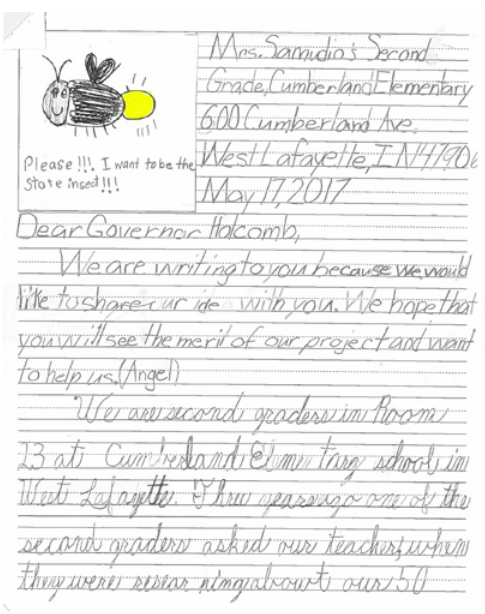 Mrs. Samudio's Second
Grade, Cumberland Elementary
600 Cumberland Ave.
West Lafayette, IN 47906
May 17, 2017
Please!!!. I want to be the
State insect!!!
Dear Governor Holcomb,
We are writing to you because we would
like to share our ide with you. We hope that
you will see the merit of our project and want
to help us. (Angel)
We are second graders in Room
23 at Cumberland Elementary school in
West Lafayette. Three years ago one of the
second graders asked our teacher, when
they were researching about our 50